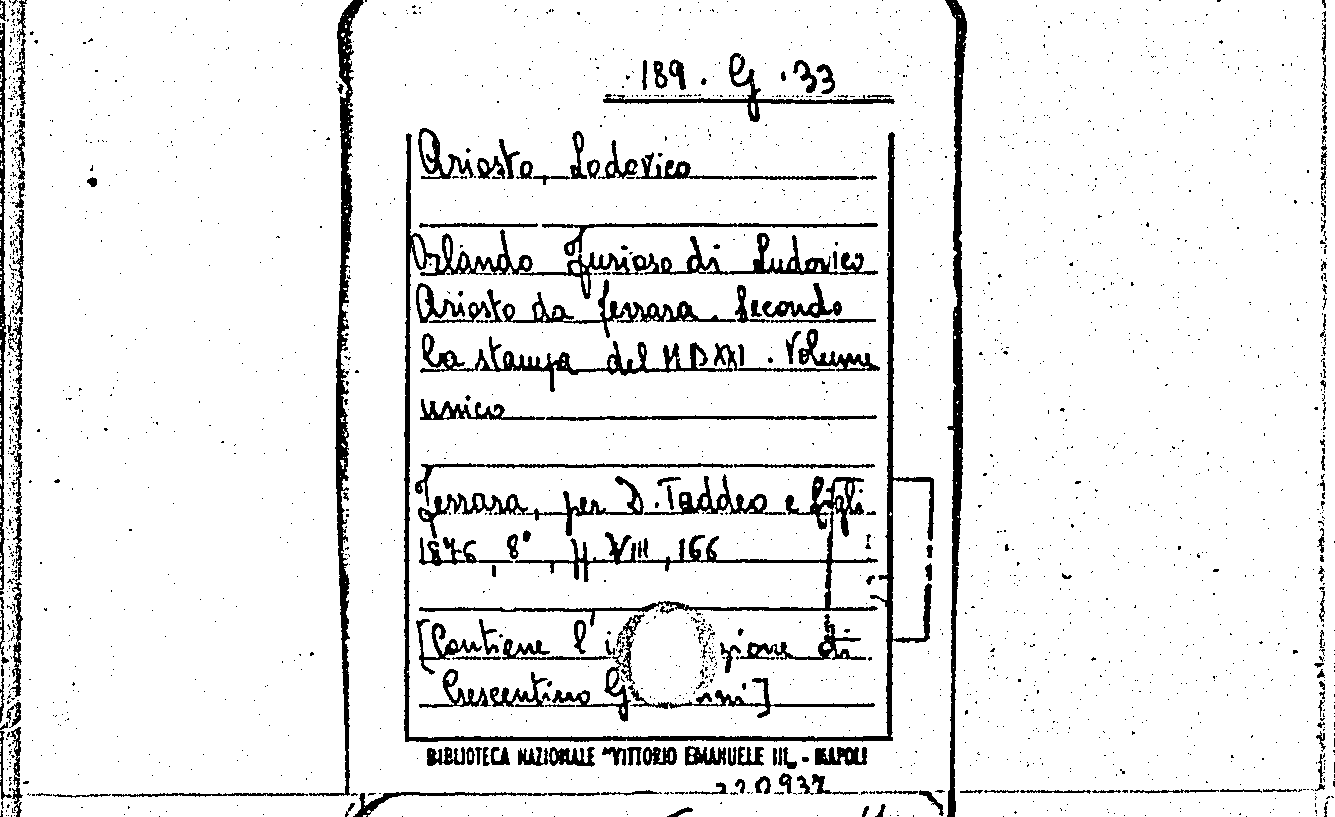 189. G. 33
Ariosto, Lodovico
Orlando Furioso di Ludovico
Ariosto da Ferrara. Secondo
la stampa del MDXXI. Volume
unico
Ferrara, per D. Taddeo e figli
1876, 8°, pp. VIII, 166
[Contiene l' di
Crescentino
BIBLIOTECA NAZIONALE "VITTORIO EMANUELE III„ - NAPOLI
220937